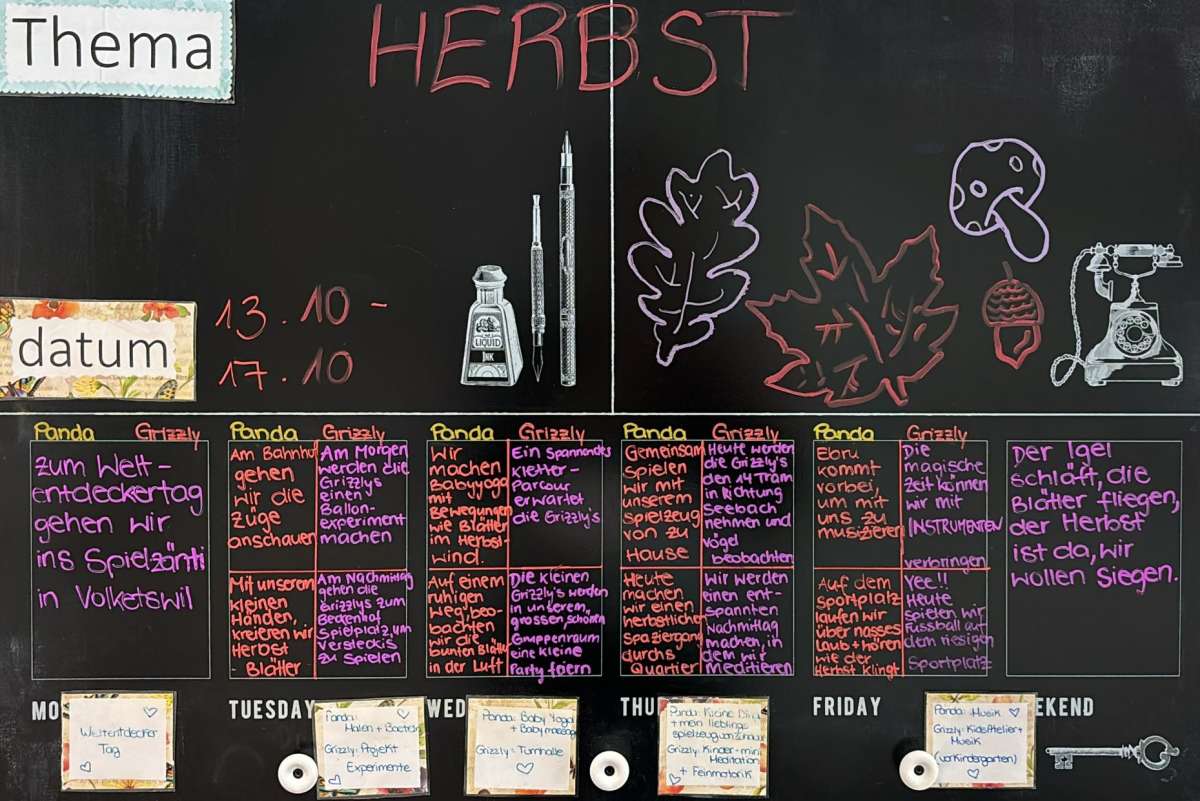 Thema
HERBST
datum
13.10 -
17.10
LIQUID
INK
Panda Grizzly
zum Welt-
entdeckertag
gehen wir
ins Spielzänti
in Volketswil
Panda
Am Bahnhof
gehen
wir die
züge
anschauen
Mit unserem
kleinen
Händen,
kreieren wir
Herbst
- Blätter
Grizzly
Am Morgen
werden die
Grizzlys
einen
Ballon-
experiment
machen
Am Nachmittag
gehen die
Grizzlys zum
Beckenhof
Spielplatz, um
Versteckis
zu spielen
Panda
Wir
machen
Babyyoga
mit
Bewegungen
wie Blätter
im Herbst-
wind.
Auf einem
ruhigen
Weg, beo-
bachten
wir die
bunten Blätter
in der Luft
Grizzly
Ein spannendes
kletter-
Parcour
erwartet
die Grizzly's
Die kleinen
Grizzly's werden
in unserem,
grossen, schönen
Gruppenraum
eine kleine
Party feiern
Panda
Gemeinsam
spielen
wir mit
unserem
spielzeug
von zu
Hause
Heute
machen
wir einen
herbstlichen
spaziergang
durchs
Quartier
Grizzly
Heute werden
die Grizzly's
den 14 Tram
in Richtung
Seebach
nehmen und
vögel
beobachten
Wir werden
einen ent-
spannten
Nachmittag
machen in
dem wir
Meditieren
Panda
Ebru
kommt
vorbei,
um mit
uns zu
musizieren
Auf dem
sportplatz
laufen wir
über nasses
laub + hören
wie der
Herbst klingt
Grizzly
Die
magische
zeit können
wir mit
INSTRUMENTEN
verbringen
Yee!!
Heute
spielen wir
Fussball auf
dem riesigen
Sportplatz
Der Igel
schläft, die
Blätter fliegen,
der Herbst
ist da, wir
wollen siegen.
MO
TUESDAY
WED
THU
FRIDAY
EKEND
Weltentdecker
Tag
Panda:
Malen + Basteln
Grizzly: Projekt
Experimente
Panda: Baby Yoga
+ Baby massage
Grizzly: Turnhalle
Panda: Kleine
+ mein lieblings
spielzeug von Zuhause
Grizzly: Kinder-mini
Meditation
+ Feinmotorik
Panda: Musik
Grizzly: Kidsatelier +
Musik
(vorkindergarten)